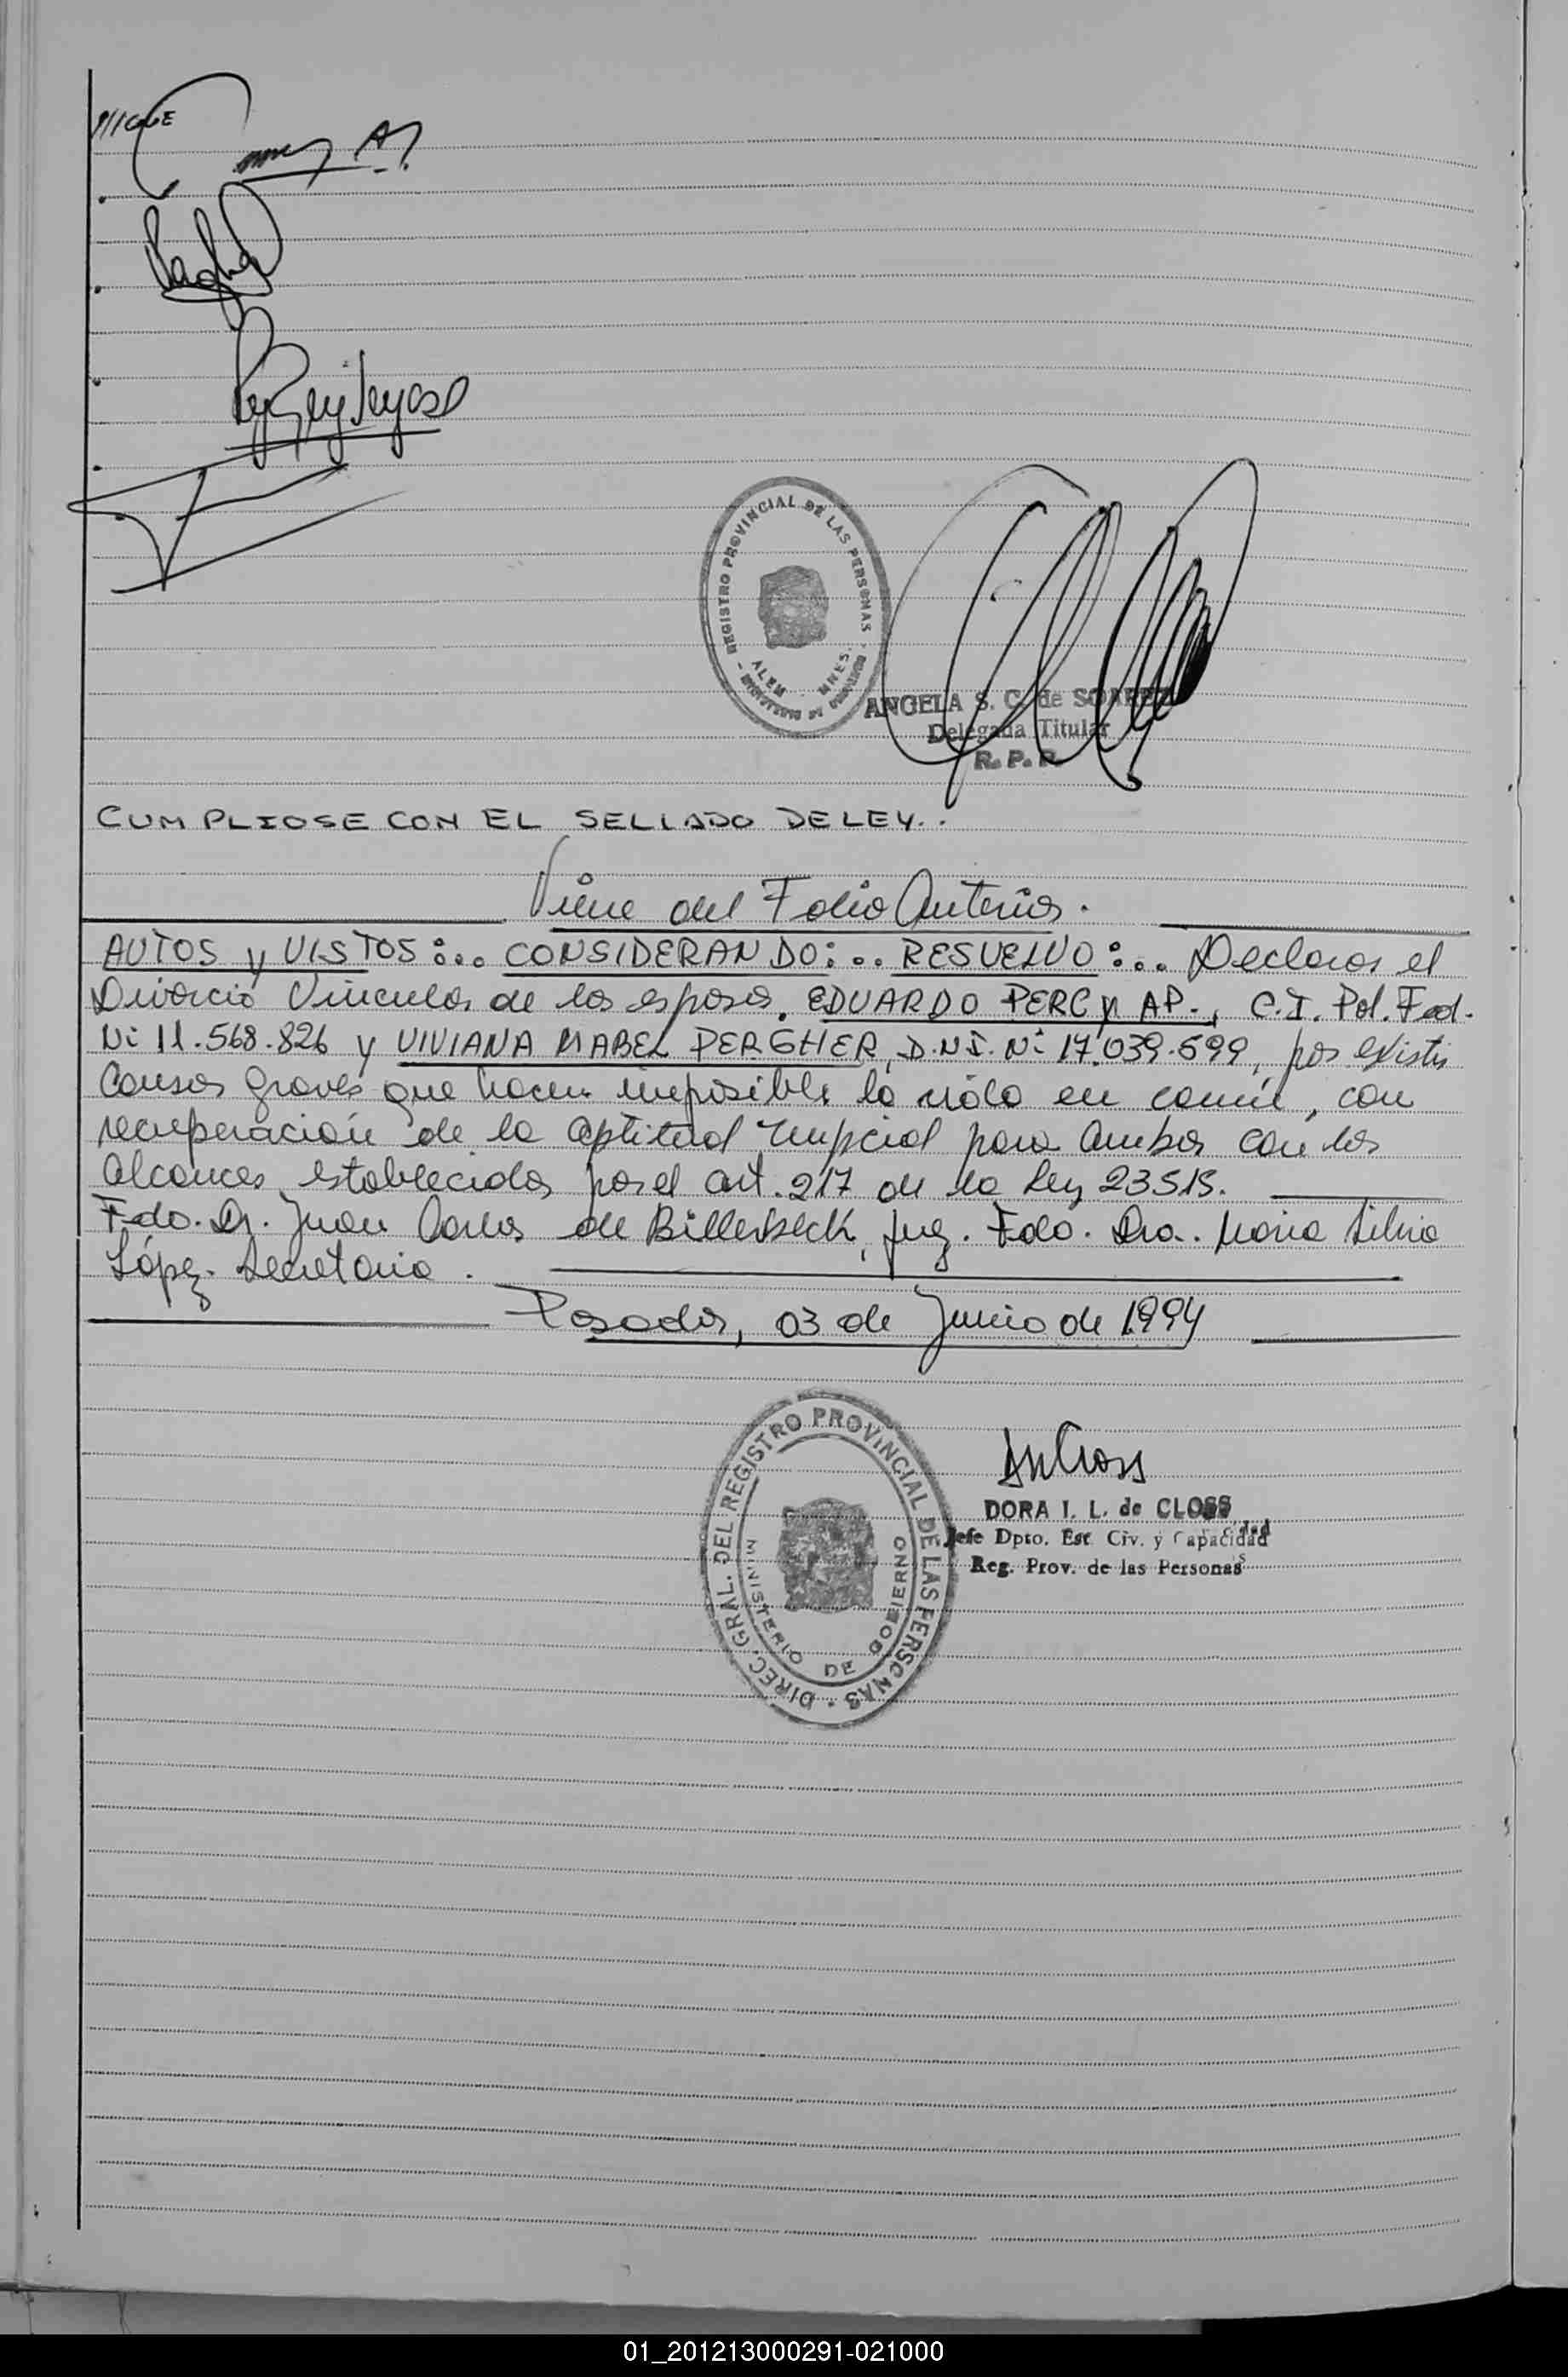 REGISTRO PROVINCIAL DE LAS PERSONAS
ALEM - MNES.
ANGELA S. C. de SOAREZ
Delegada Titular
R. P. P.
CUMPLIOSE CON EL SELLADO DE LEY..
Viene del Folio Anterior.
AUTOS y VISTOS:... CONSIDERANDO:... RESUELVO:... Declarar el
Divorcio Vincular de los esposos. EDUARDO PERCY AP., C.I. Pol. Fed.
Nº 11.568.826 y VIVIANA MABEL PERGHER, D.N.I. Nº 17.039.599, por existir
Causas graves que hacen imposible la vida en común, con
recuperación de la aptitud nupcial para ambos con los
alcances establecidos por el art. 217 de la Ley 23515.
Fdo. Dr. Juan Carlos de Billerbeck, Juez. Fdo. Dra. María Silvia
López. Secretaria.
Posadas, 03 de Junio de 1994
DIREC. GRAL. DEL REGISTRO PROVINCIAL DE LAS PERSONAS
MINISTERIO DE GOBIERNO
DORA I. L. de CLOSS
Jefe Dpto. Est. Civ. y Capacidad
Reg. Prov. de las Personas
01_201213000291-021000